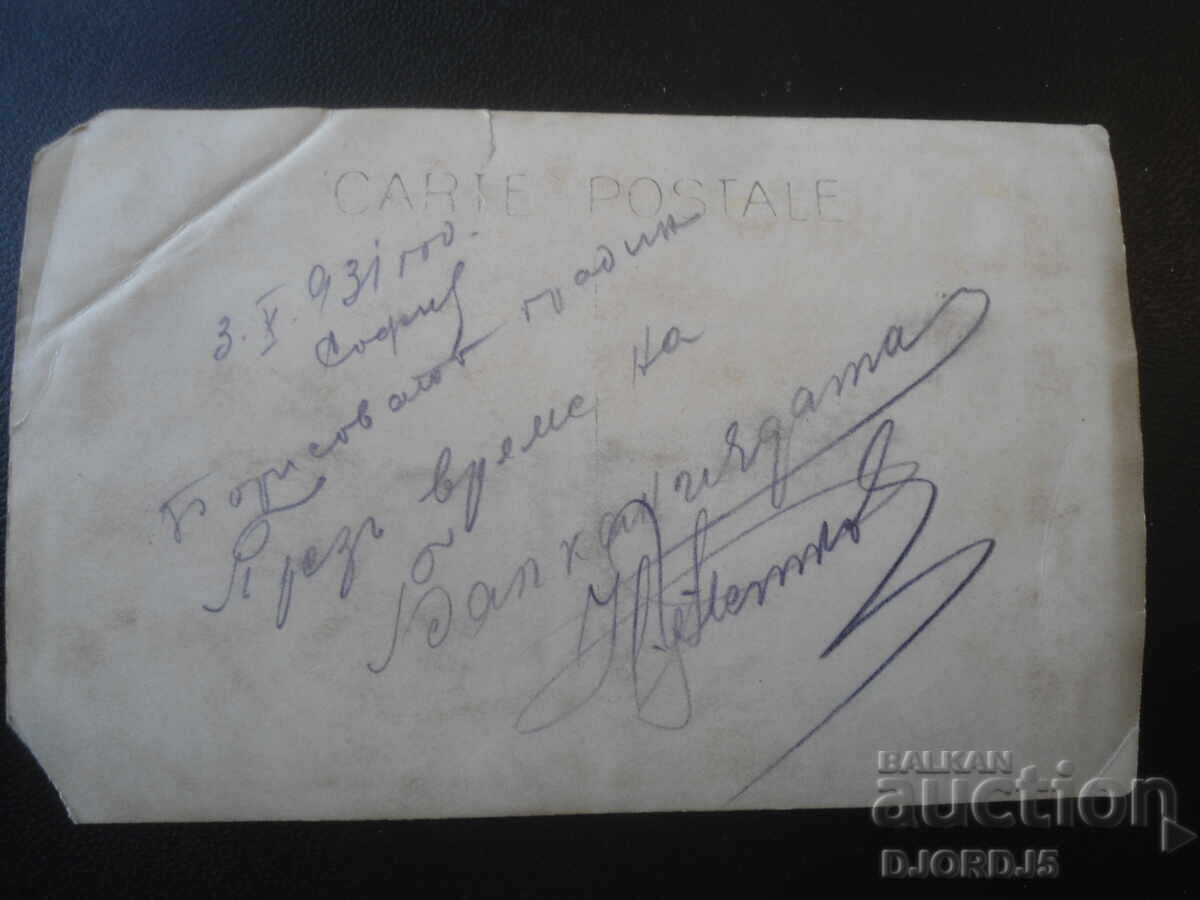 CARTE POSTALE
3. X. 931 год.
София
Борисовата градин
Презъ време на
Балканиядата
BALKAN
auction
DJORDJ5